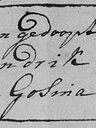 n gedoopt
ndrik
Gosina